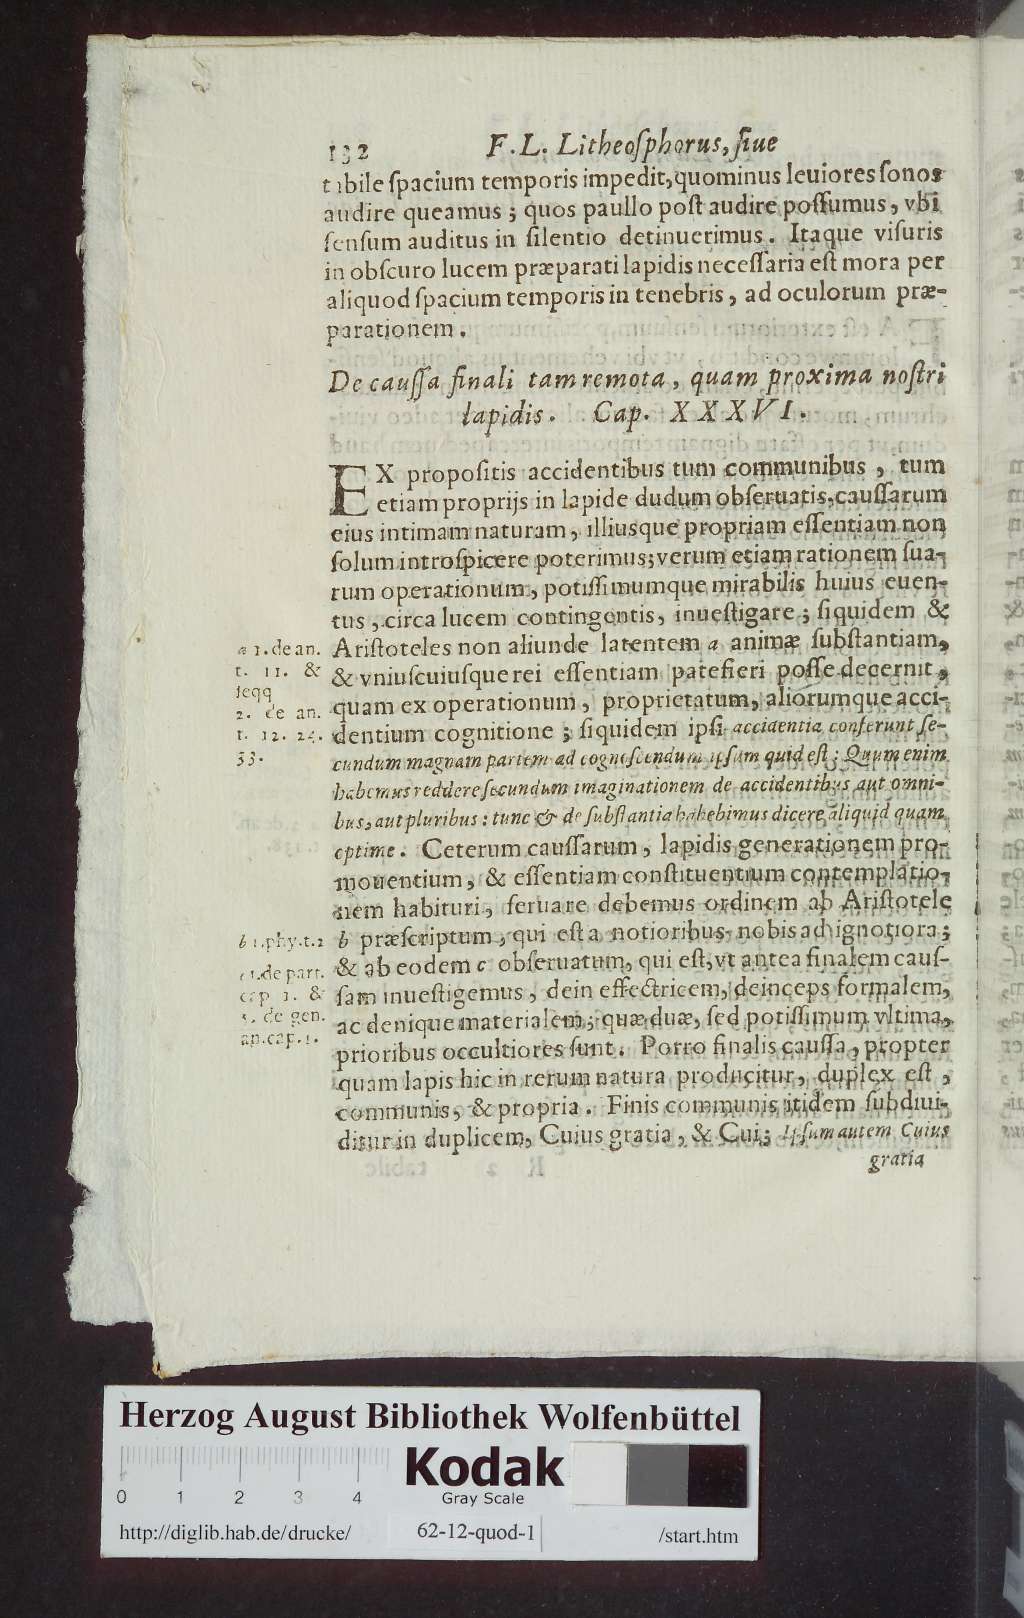 132 F. L. Litheosphorus, ſiue
tabile ſpacium temporis impedit, quominus leuiores ſonos
audire queamus; quos paullo poſt audire poſſumus, vbi
ſenſum auditus in ſilentio detinuerimus. Itaque viſuris
in obſcuro lucem præparati lapidis neceſſaria eſt mora per
aliquod ſpacium temporis in tenebris, ad oculorum præ-
parationem.
De cauſſa finali tam remota, quam proxima noſtri
lapidis. Cap. XXXVI.
EX propoſitis accidentibus tum communibus, tum
etiam proprijs in lapide dudum obſeruatis, cauſſarum
eius intimam naturam, illiusque propriam eſſentiam non
ſolum introſpicere poterimus; verum etiam rationem ſua-
rum operationum, potiſſimumque mirabilis huius euen-
tus, circa lucem contingentis, inueſtigare; ſiquidem &
Ariſtoteles non aliunde latentem a animæ ſubſtantiam,
& vniuſcuiuſque rei eſſentiam patefieri poſſe decernit,
quam ex operationum, proprietatum, aliorumque acci-
dentium cognitione; ſiquidem ipſi accidentia conferunt ſe-
cundum magnam partem ad cognoſcendum ipſum quid eſt: Quum enim
habemus reddere ſecundum imaginationem de accidentibus aut omni-
bus, aut pluribus: tunc & de ſubſtantia habebimus dicere aliquid quam
optime. Ceterum cauſſarum, lapidis generationem pro-
mouentium, & eſſentiam conſtituentium contemplatio-
nem habituri, ſeruare debemus ordinem ab Ariſtotele
b præſcriptum, qui eſt a notioribus nobis ad ignotiora;
& ab eodem c obſeruatum, qui eſt, vt antea finalem cauſ-
ſam inueſtigemus, dein effectricem, deinceps formalem,
ac denique materialem; quæ duæ, ſed potiſſimum vltima,
prioribus occultiores ſunt. Porro finalis cauſſa, propter
quam lapis hic in rerum natura producitur, duplex eſt,
communis, & propria. Finis communis itidem ſubdiui-
ditur in duplicem, Cuius gratia, & Cui; Ipſum autem Cuius
gratia
a 1. de an.
t. 11. &
ſeqq
2. de an.
t. 12. 24.
33.
b 1. phy. t. 2
c 1. de part.
cap 1. &
5. de gen.
an. cap. 1.
Herzog August Bibliothek Wolfenbüttel
Kodak
Gray Scale
0 1 2 3 4
http://diglib.hab.de/drucke/ 62-12-quod-1 /start.htm